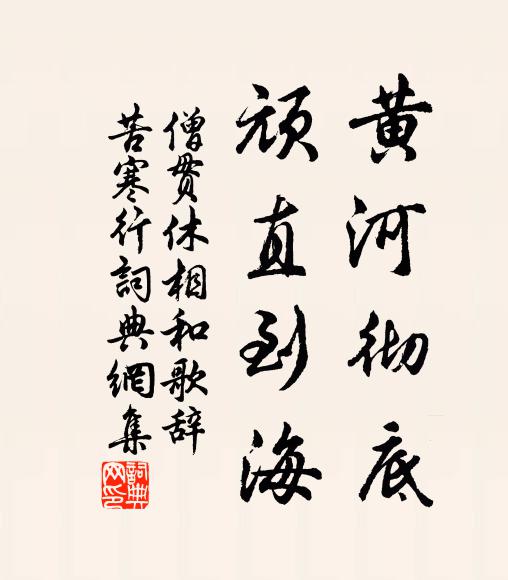 黄河彻底
顽直到海
僧贯休相和歌辞
苦寒行詞典網集
詞典
网印